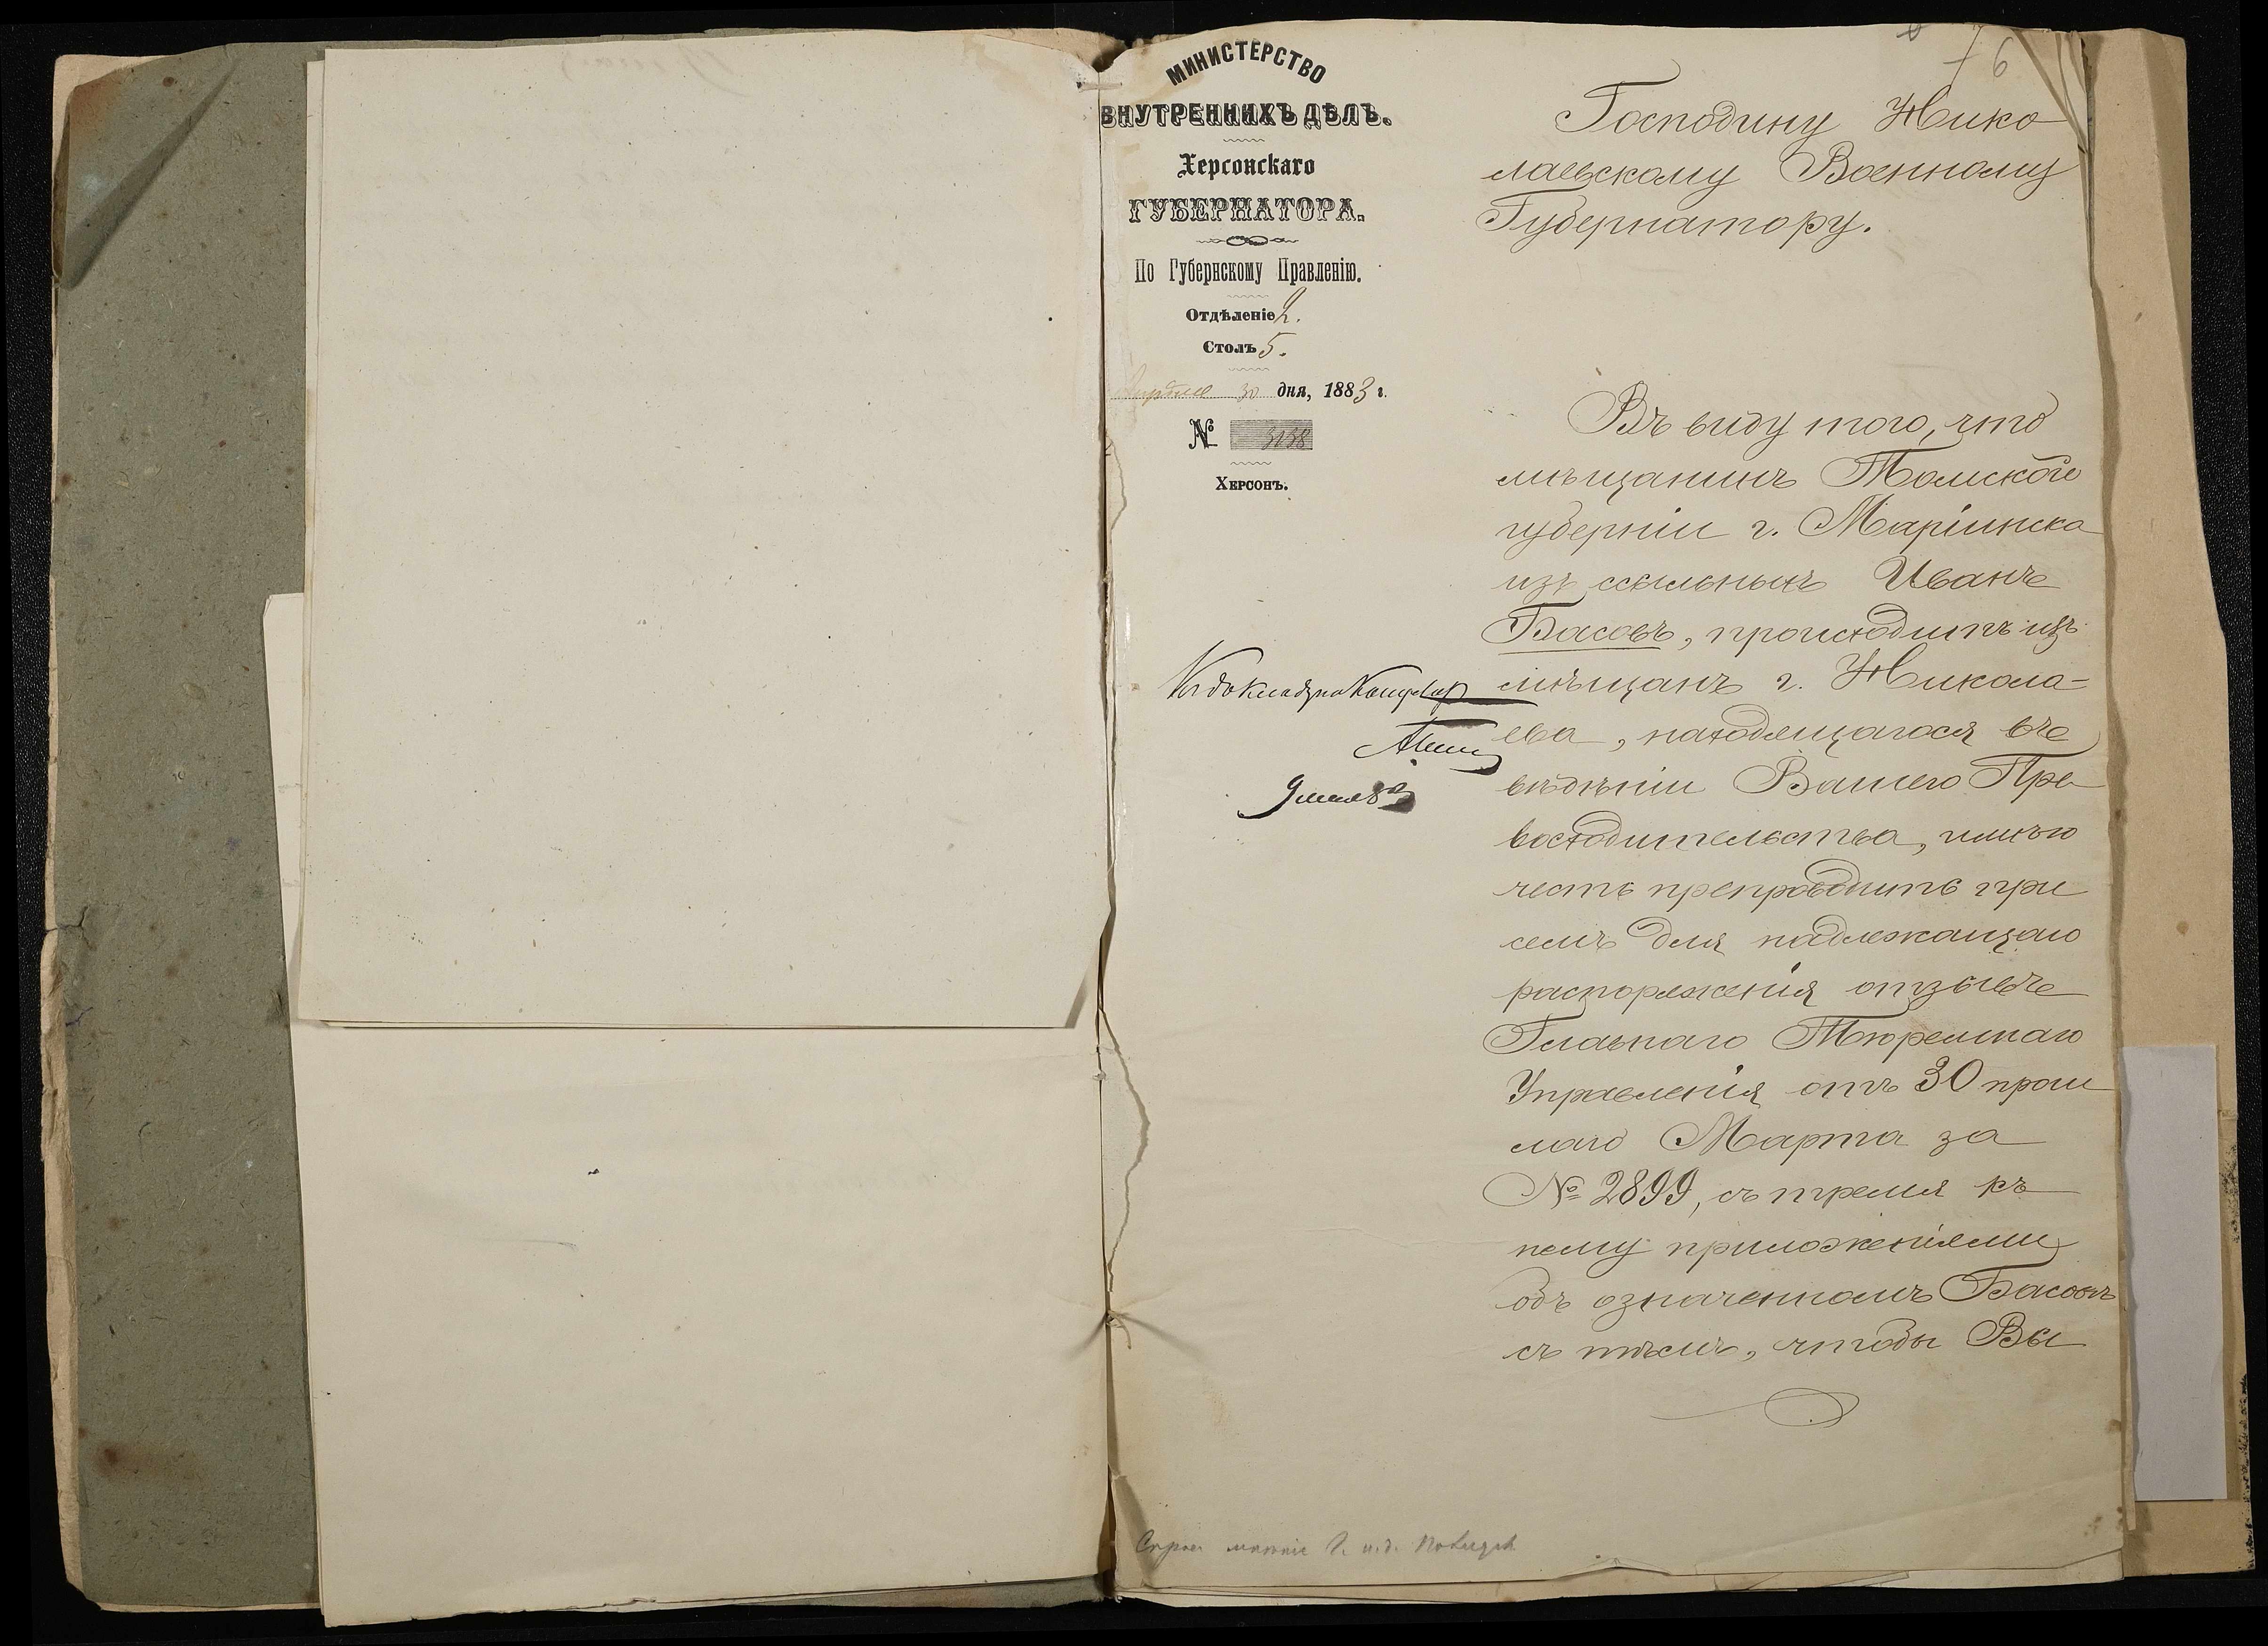 МИНИСТЕРСТВО
ВНУТРЕННИХЪ ДѢЛЪ.
Херсонскаго
ГУБЕРНАТОРА.
По Губернскому Правленію.
Отдѣленіе 2.
Столъ 5.
Апрѣля 30 дня, 1883 г.
№ 3138
Херсонъ.
76
Господину Нико
лаевскому Военному
Губернатору.
Въ виду того, что
мѣщанинъ Томской
губерніи г. Маріинска
изъ ссыльныхъ Иванъ
Басовъ, происходитъ изъ
мѣщанъ г. Никола-
ева, находящагося въ
вѣдѣніи Вашего Пре
восходительства, имѣю
честь препроводить при
семъ для надлежащаго
распоряженія отзывъ
Главнаго Тюремнаго
Управленія отъ 30 прош
лаго Марта за
№ 2899, съ тремя къ
нему приложеніями
объ означенномъ Басовѣ
съ тѣмъ, чтобы Вы
9 мая 83